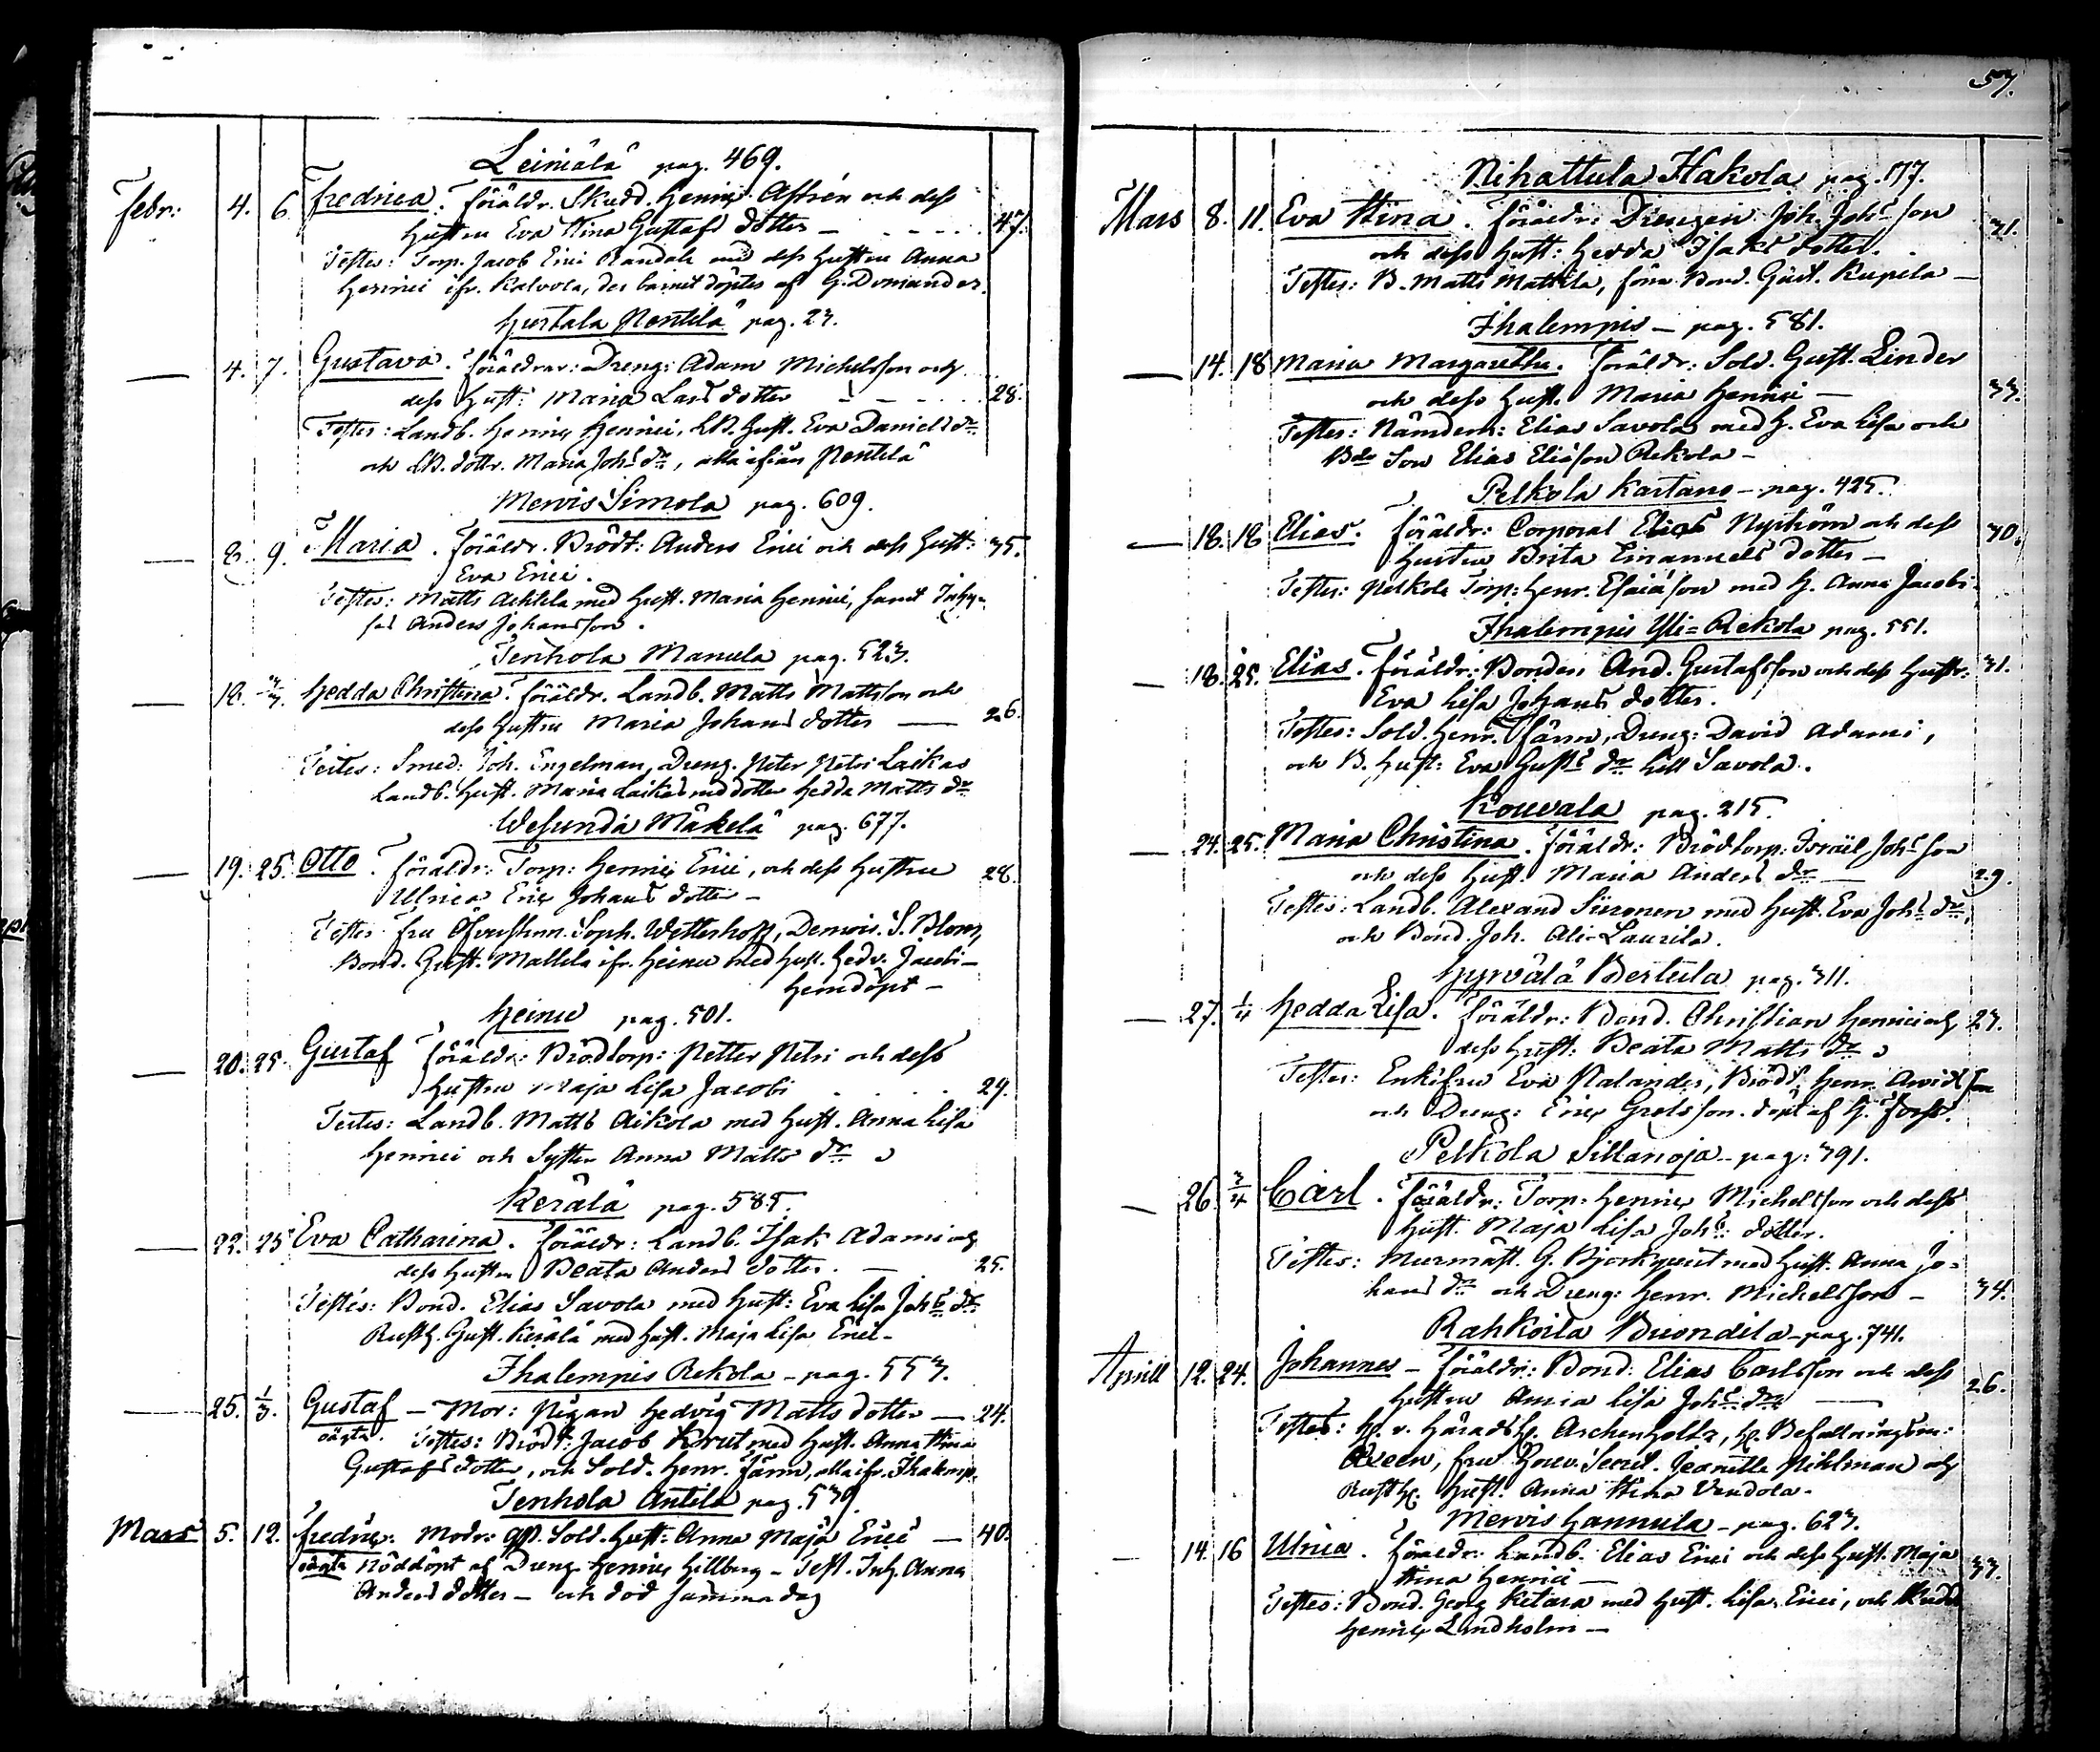 Leiniälä pag. 469.
Febr: 4. 6. Fredrica. Föräldr. Skrädd. Henric Astrén och dess
hustru Eva Stina Gustafs dotter — 47.
Testes: Torp. Jacob Erici Randala med dess hustru Anna
Henrici ifr. Kalvola, der barnet döptes af G. Domander.
Hurtala Pentilä pag. 23.
— 4. 7. Gustava. Föräldrar: Dreng: Adam Michelsson och
dess Hust: Maria Lars dotter 28.
Testes: Landb. Henric Henrici, LB. Hust. Eva Daniels dr
och LB. dottr. Maria Johs dr, alla ifrån Pentilä
Mervis Simola pag. 609.
— 8. 9. Maria. Föräldr. Brödt: Anders Erici och dess Hust: 35.
Eva Erici.
Testes: Matts Achtela med Hust. Maria Henrici, samt Inhy-
ses Anders Johansson.
Tenhola Manula pag. 523.
— 18. 3/3. Hedda Christina. Föräldr. Landb. Matts Mattsson och
dess hustru Maria Johans dotter — 26.
Testes: Smed: Joh. Engelman, Dreng. Peter Petri Laikas
Landb. Hust. Maria Laikas med dotter Hedda Matts dr
Wesunda Mäkelä pag. 677.
— 19. 25. Otto. Föräldr: Torp: Henric Erici, och dess hustru 28.
Ulrica Eric Johans dotter —
Testes fru Soph. Wetterhoff, Demois. S. Blom,
Bond. Gust. Mattela ifr. Heinu med Hust. Hedv. Jacobi —
Hemdöpt —
Heinu pag. 501.
— 20. 25. Gustaf Föräldr: Brödtorp: Petter Petri och dess
Hustru Maja Lisa Jacobi 29.
Testes: Landb. Matts Aikola med Hust. Anna Lisa
Henrici och Syster Anna Matts dr
Kerälä pag. 585.
— 22. 25 Eva Catharina. Föräldr: Landb. Isak Adami och
dess hustru Beata Anders dotter. — 25.
Testes: Bond. Elias Savola med Hust: Eva Lisa Johs dr
Rusth. Gust. Kerälä med Hust. Maja Lisa Erici —
Ihalempis Rekola — pag. 553.
— 25. 1/3. Gustaf — Mor: Pigan Hedvig Matts dotter — 24.
oägta. Testes: Brödt: Jacob Korut med Hust. Anna Stina
Gustafs dotter, och Sold. Henr. Järn, alla ifr. Ihalemp.
Tenhola Antila pag. 539
Mars 5. 12. Fredric: Modr: Sold. Hust: Anna Maja Erici — 40.
oägta Nöddöpt af Dreng Henric Hillberg — Test. Inh. Anna
Anders dotter — och död samma dag
57.
Nihattula Hakola pag. 117.
Mars 8. 11. Eva Stina. Föräldr: Drengen Joh. Johs son 31.
och dess Hust: Hedda Isaks dotter.
Testes: B. Matts Mattila, förra Bond. Gust. Kupila —
Ihalempis — pag. 581.
— 14. 18 Maria Margaretha. Föräldr: Sold. Gust. Linder
och dess Hust. Maria Henrici — 33.
Testes: Nämdem: Elias Savola med H. Eva Lisa och
Bde Son Elias Eliæson Rekola —
Pelkola Kartano — pag. 425.
— 18. 18 Elias. Föräldr: Corporal Elias Nyström och dess 30.
Hustru Brita Emanuels dotter —
Testes: Pelkola Torp: Henr. Esaiæson med H. Anna Jacobi.
Ihalempis Yli-Rekola pag. 551.
— 18. 25. Elias. Föräldr: Bonden And. Gustafsson och dess Hustr: 31.
Eva Lisa Johans dotter.
Testes: Sold. Henr. Järn, Dreng: David Adami,
och B. Hust: Eva Gusts dr Lill Savola.
Kouvala pag. 215.
— 24. 25. Maria Christina. Föräldr: Brödtorp: Israël Johs son
och dess Hust. Maria Anders dr — 29.
Testes: Landb. Alexand Siironen med Hust. Eva Johs dr,
och Bond. Joh. Ali-Laurila.
Hyrvälä Bertula pag. 311.
— 27. 1/4 Hedda Lisa. Föräldr: Bond. Christian Henrici och 23.
dess Hust: Beata Matts dr
Testes: Enkefru Eva Nalander, Brödt. Henr. Arvidsson
och Dreng: Eric Grelsson. döpt af H. Forsst.
Pelkola Sillanoja — pag: 391.
— 26 3/4 Carl. Föräldr: Torp: Henric Michelsson och dess
Hust. Maja Lisa Johs: dotter.
Testes: Murmäst. G. Bjorkqvist med Hust. Anna Jo-
hans dr och Dreng: Henr. Michelsson — 34.
Rahkoila Buondila — pag. 741.
Aprill 12. 24. Johannes — Föräldr: Bond: Elias Carlsson och dess 26.
hustru Anna Lisa Johs dr —
Testes: H. v. Häradsh. Aschenholtz, H. Befallningsm:
Aveen, fru Secret. Jeanette Pihlman och
Rusth. Hust. Anna Stina Uendola —
Mervis Hannula — pag. 623.
— 14. 16 Ulrica. Föräldr: Landb. Elias Erici och dess Hust. Maja 33.
Stina Henrici —
Testes: Bond. Georg Ketara med Hust. Lisa Erici, och Skudd
Henric Lindholm —